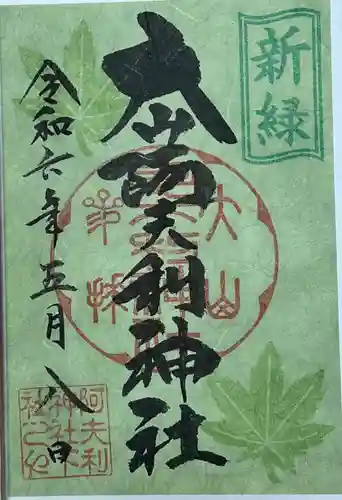 新緑
大山阿夫利神社
令和六年五月八日
阿夫利
神社下
社之印